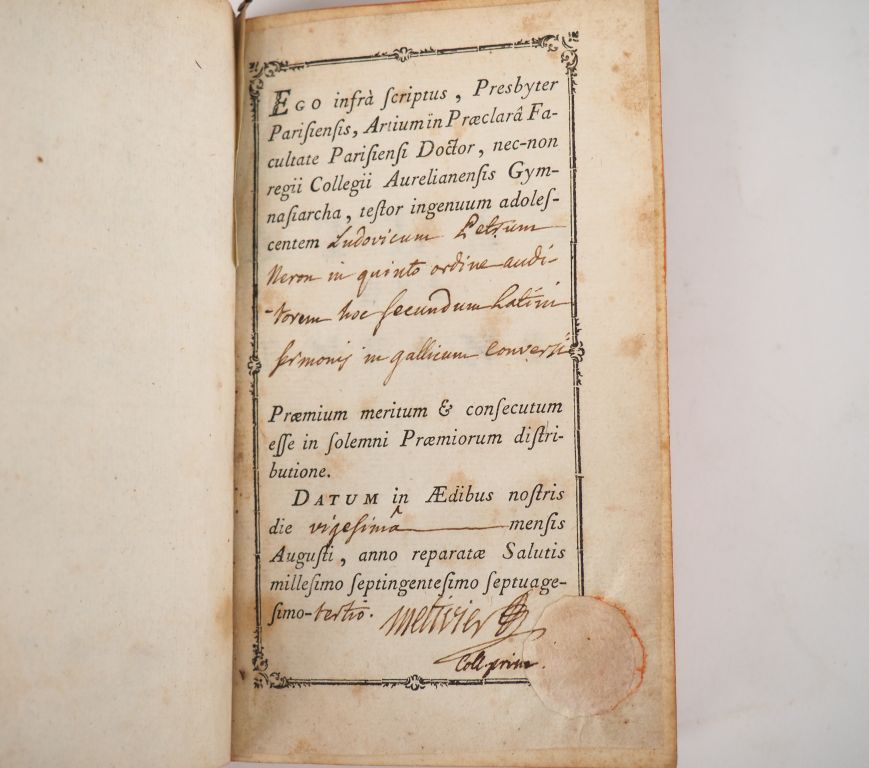 EGO infrà ſcriptus, Presbyter
Pariſienſis, Artium in Præclarâ Fa-
cultate Pariſienſi Doctor, nec-non
regii Collegii Aurelianenſis Gym-
naſiarcha, teſtor ingenuum adoleſ-
centem Ludovicum Petrum
Neron in quinto ordine audi-
torem hoc ſecundum Latini
ſermonis in gallicum Conversi
Præmium meritum & conſecutum
eſſe in ſolemni Præmiorum diſtri-
butione.
DATUM in Ædibus noſtris
die vigeſimâ mensis
Auguſti, anno reparatæ Salutis
milleſimo ſeptingenteſimo ſeptuage-
ſimo-tertio. Metivier
Coll. prim.